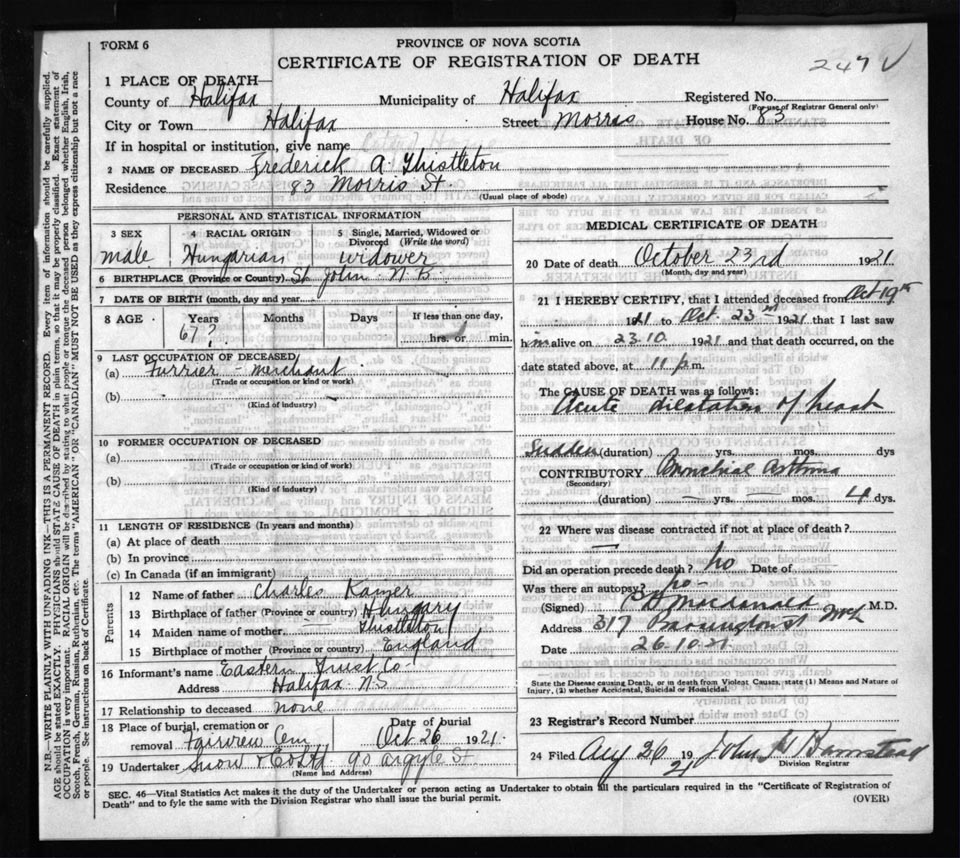 FORM 6
PROVINCE OF NOVA SCOTIA
CERTIFICATE OF REGISTRATION OF DEATH
247
1 PLACE OF DEATH
County of Halifax Municipality of Halifax Registered No.
(For use of Registrar General only)
City or Town Halifax Street Morris House No. 83
If in hospital or institution, give name
2 NAME OF DECEASED Frederick A. Thistleton
Residence 83 Morris St
(Usual place of abode)
PERSONAL AND STATISTICAL INFORMATION
3 SEX 4 RACIAL ORIGIN 5 Single, Married, Widowed or Divorced (Write the word)
male Hungarian widower
6 BIRTHPLACE (Province or Country) St John N.B.
7 DATE OF BIRTH (month, day and year)
8 AGE Years Months Days If less than one day,
67? hrs. or min.
9 LAST OCCUPATION OF DECEASED
(a) Furrier - merchant
(Trade or occupation or kind or work)
(b)
(Kind of industry)
10 FORMER OCCUPATION OF DECEASED
(a)
(Trade or occupation or kind or work)
(b)
(Kind of industry)
11 LENGTH OF RESIDENCE (In years and months)
(a) At place of death
(b) In province
(c) In Canada (if an immigrant)
Parents
12 Name of father Charles Kaiser
13 Birthplace of father (Province or country) Hungary
14 Maiden name of mother Thistleton
15 Birthplace of mother (Province or country) England
16 Informant's name Eastern Trust Co.
Address Halifax N.S
17 Relationship to deceased none
18 Place of burial, cremation or removal Fairview Cem Date of burial Oct 26 1921.
19 Undertaker Snow & Co Ltd 90 Argyle St.
(Name and Address)
MEDICAL CERTIFICATE OF DEATH
20 Date of death October 23rd 1921
(Month, day and year)
21 I HEREBY CERTIFY, that I attended deceased from Oct 19th
1921 to Oct. 23rd 1921 that I last saw
him alive on 23.10. 1921 and that death occurred, on the
date stated above, at 11 p.m.
The CAUSE OF DEATH was as follows:
Acute dilatation of heart
Sudden (duration) yrs. mos. dys
CONTRIBUTORY Bronchial Asthma
(Secondary)
(duration) — yrs. — mos. 4 dys.
22 Where was disease contracted if not at place of death?
—
Did an operation precede death? no Date of
Was there an autopsy? no-
(Signed) Macdonald M.D.
Address 317 Barrington St
Date 26.10.21.
State the Disease causing Death, or in death from Violent Causes, state (1) Means and Nature of Injury, (2) whether Accidental, Suicidal or Homicidal.
23 Registrar's Record Number
24 Filed Aug 26 1921 John H Barnstead
Division Registrar
SEC. 46—Vital Statistics Act makes it the duty of the Undertaker or person acting as Undertaker to obtain all the particulars required in the "Certificate of Registration of
Death" and to fyle the same with the Division Registrar who shall issue the burial permit.
(OVER)
N.B.—WRITE PLAINLY WITH UNFADING INK—THIS IS A PERMANENT RECORD. Every item of information should be carefully supplied.
AGE should be stated EXACTLY. PHYSICIANS should STATE CAUSE OF DEATH in plain terms, so that it may be properly classified. Exact statement of
OCCUPATION is very important. RACIAL ORIGIN will be described by stating to what people or tongue the deceased person belonged whether English, Irish,
Scotch, French, German, Russian, Ruthenian, etc. The terms "AMERICAN" OR "CANADIAN" MUST NOT BE USED as they express citizenship but not a race
or people. See instructions on back of Certificate.